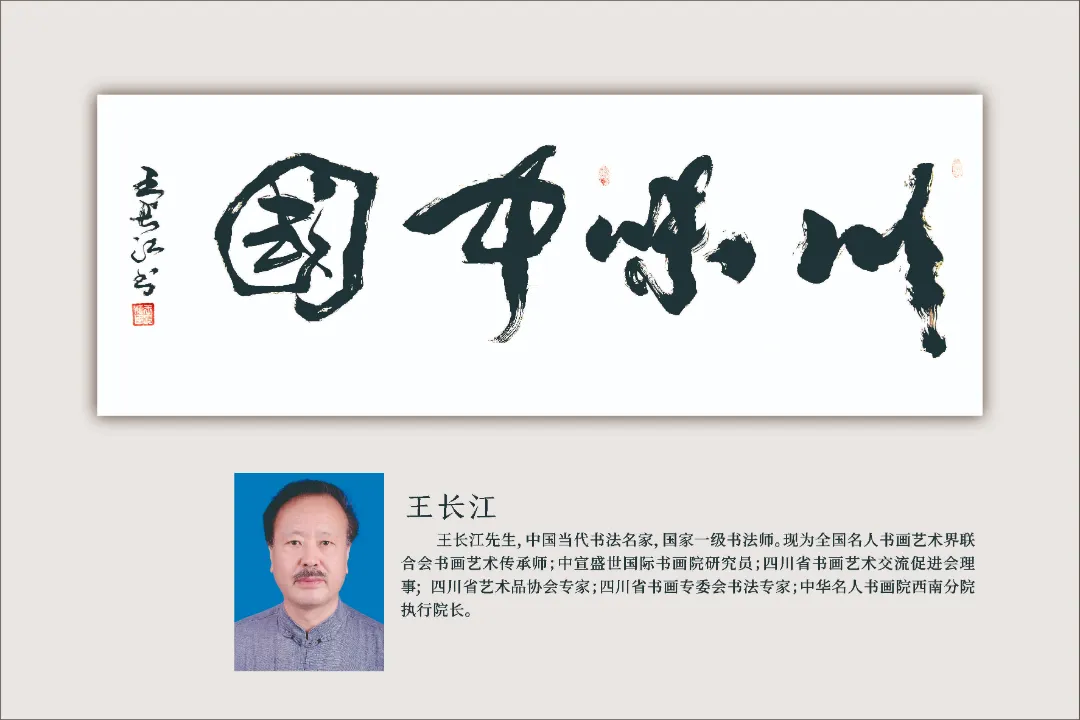 川味中國
王長江书
王长江
王长江先生,中国当代书法名家,国家一级书法师。现为全国名人书画艺术界联
合会书画艺术传承师;中宣盛世国际书画院研究员;四川省书画艺术交流促进会理
事; 四川省艺术品协会专家;四川省书画专委会书法专家;中华名人书画院西南分院
执行院长。